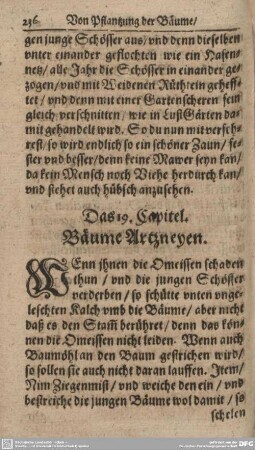 236. Von Pflantzung der Bäume/
gen junge Schösser aus/ vnd denn dieselben
vnter einander geflochten wie ein Hasen-
netz/ alle Jahr die Schösser in einander ge-
zogen/ vns mit Weidenen Rüthlein gehefft-
tet/ vnd denn mit einer Gartenscheren fein
gleich verschnitten/ wie in LustGärten da-
mit gehandelt wird. So du nun mit versch-
rest/ so wird endlich so ein schöner Zaun/ fe-
ster vnd besser/ denn keine Mawer seyn kan/
da kein Mensch noch Viehe herdurch kan/
vnd siehet auch hübsch anzusehen.
Das 19. Capitel.
Bäume Artzneyen.
WEnn jhnen die Omeissen schaden
thun/ vnd die jungen Schösser
verderben/ so schütte vnten vnge-
leschten Kalch vmb die Bäume/ aber nicht
daß es den Stam̃ berühret/ denn das kön-
nen die Omeissen nicht leiden. Wenn auch
Baumöhl an den Baum gestrichen wird/
so sollen sie auch nicht daran lauffen. Item/
Nim Ziegenmist/ vnd weiche den ein/ vnd
bestreiche die jungen Bäume wol damit/ so
schelen